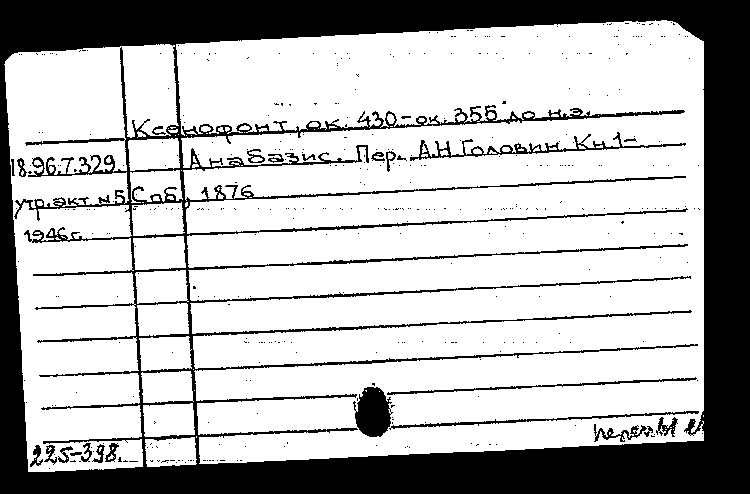 Ксенофонт, ок. 430-ок. 355 до н.э.
18.96.7.329. Анабазис. Пер. А.Н.Головин. Кн 1-
утр.акт. №5, Спб., 1876
1946г.
225-398.